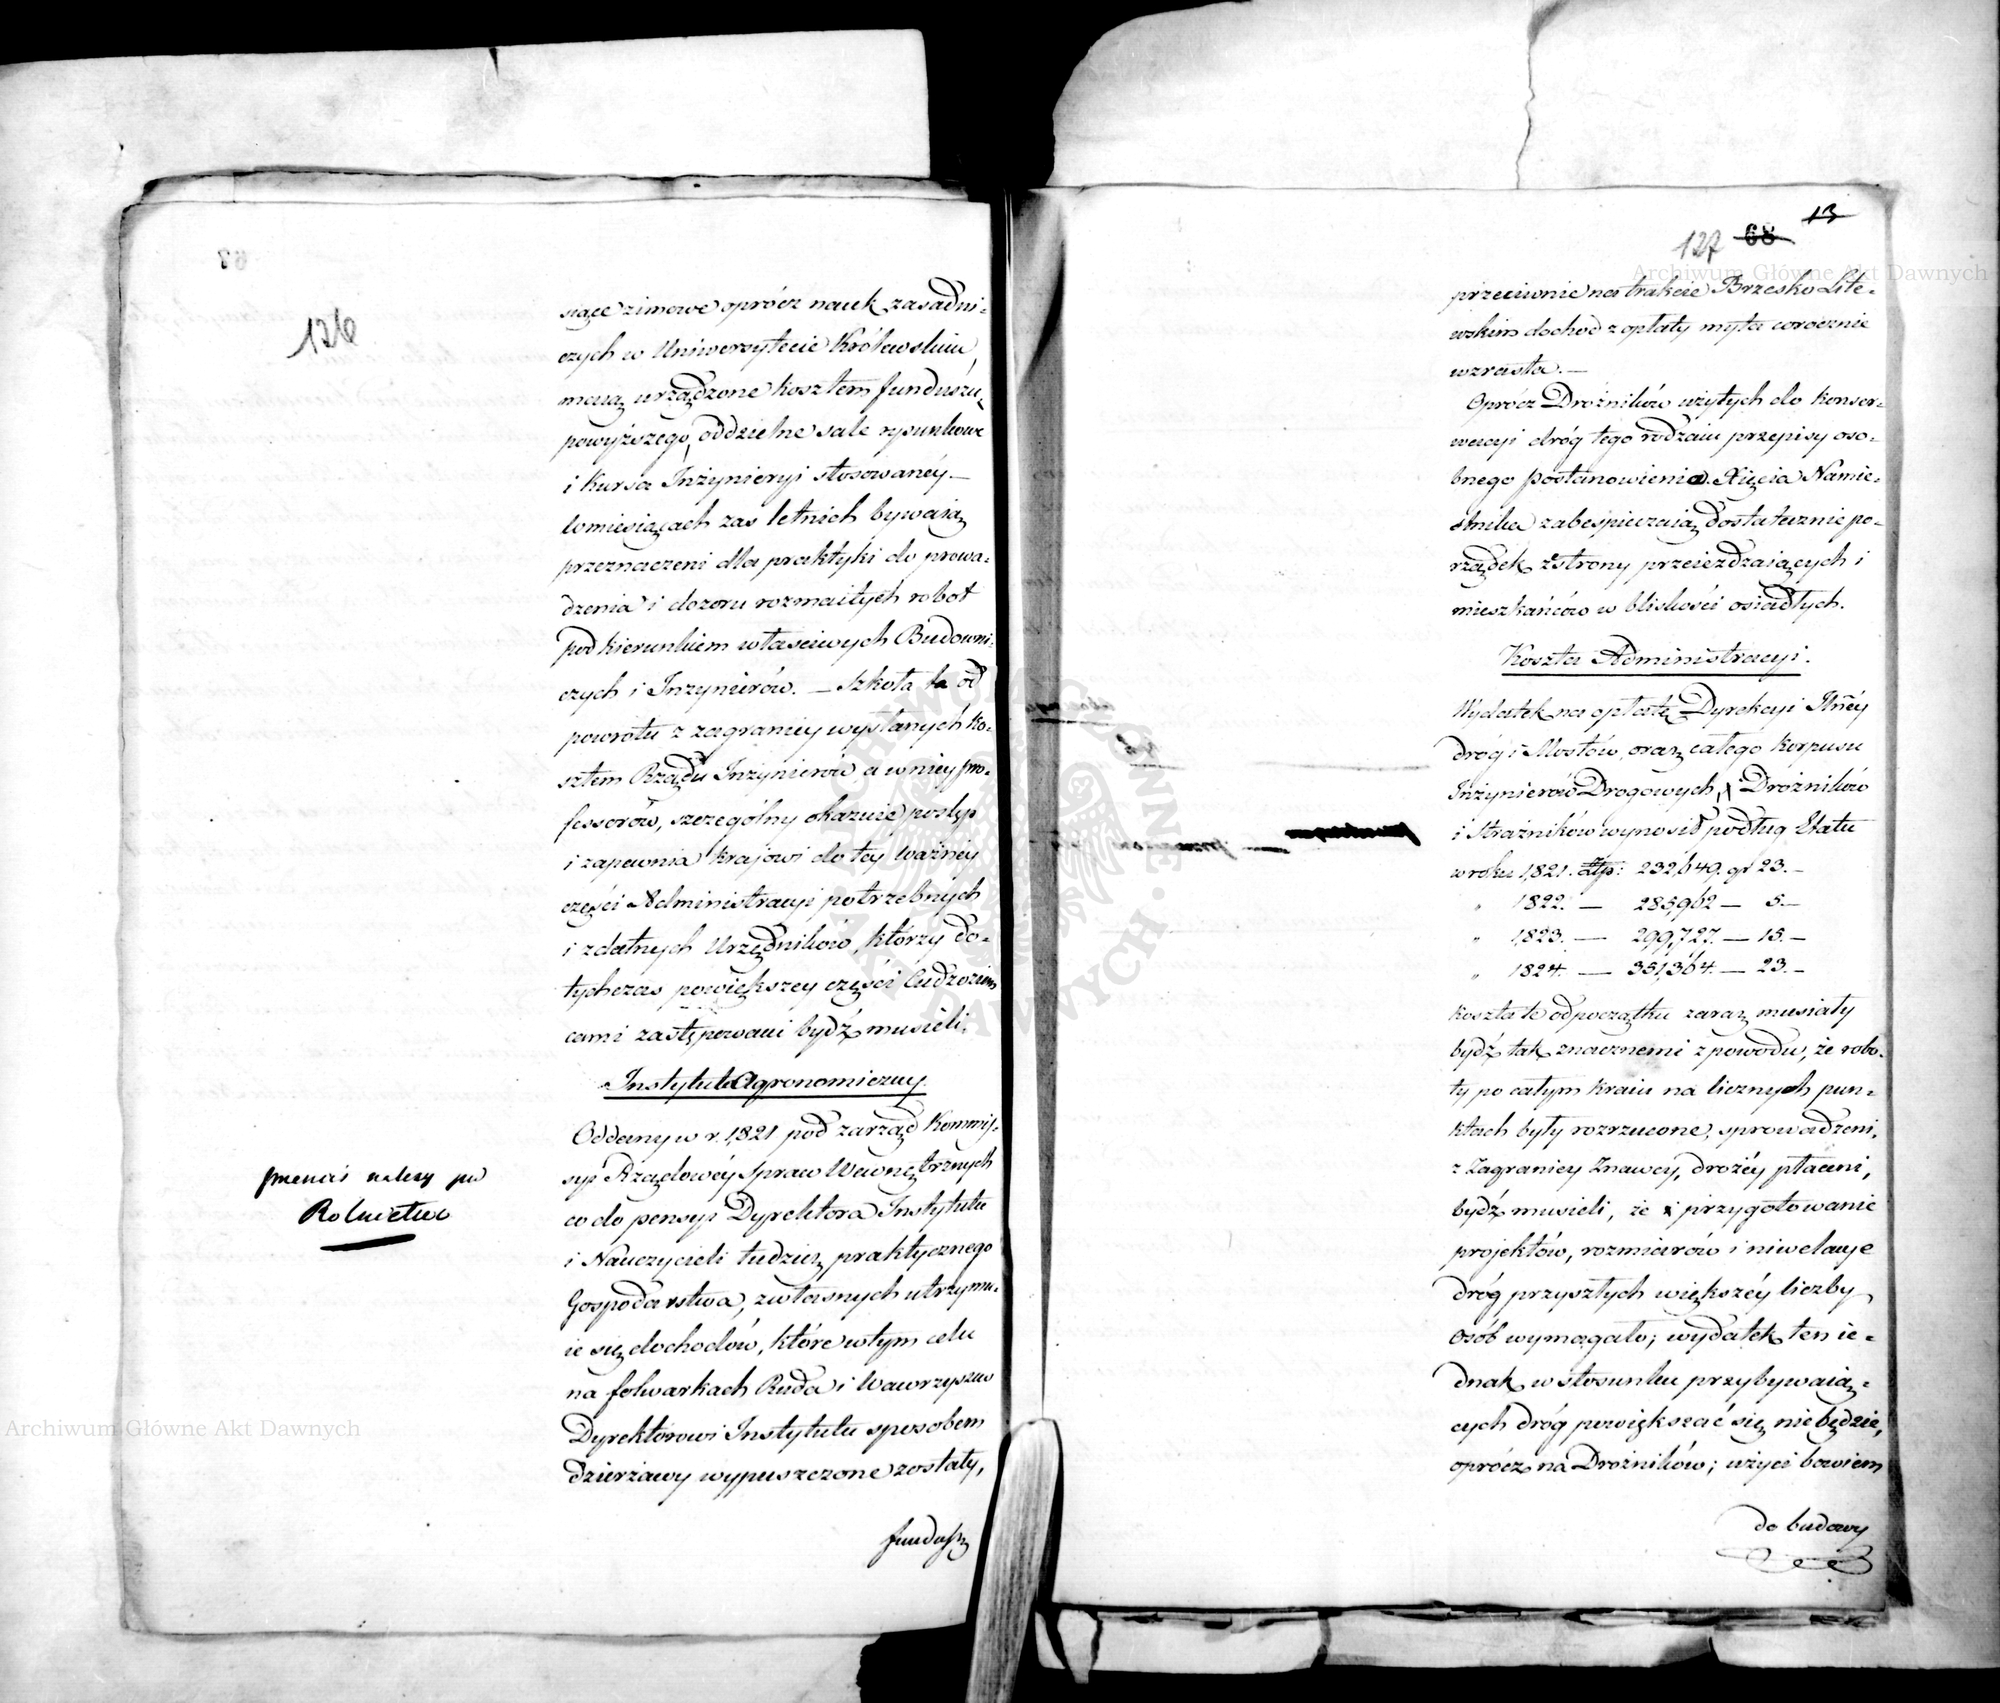 126
siące zimowe oprócz nauk zasadni-
czych w Uniwersytecie Królewskim,
maią urządzone kosztem funduszu
powyższego, oddzielne sale rysunkowe
i Kursa Inżynieryi stosowanéy. —
w miesiącach zas letnich bywaią
przeznaczeni dla praktyki do prowa-
dzenia i dozoru rozmaitych robot
pod kierunkiem właściwych Budowni-
czych i Inżynierów. — Szkoła ta od
powrotu z zagranicy wysłanych ko-
sztem Rządu Inżynierów a w niey pro-
fessorów, szczególny okazuie postęp
i zapewnia krajowi do tey ważnéy
części Administracyi potrzebnych
i zdatnych Urzędników, którzy do-
tychczas powiększey części Cudzoziem
cami zastępowani bydź musieli.
Instytut Agronomiczny.
Oddany w r. 1821 pod zarząd Kommis-
syi Rządowéy Spraw Wewnętrznych
co do pensyi Dyrektora Instytutu
i Nauczycieli tudzież praktycznego
Gospodarstwa, z własnych utrzymu-
ie się dochodów, które w tym celu
na folwarkach Ruda i Wawrzyszew
Dyrektorowi Instytutu sposobem
dzierżawy wypuszczone zostały,
fundusz
należy
Rolnictwo
13
127 68
przeciwnie na trakcie Brzesko Lite-
wskim dochod z opłaty myta corocznie
wzrasta. —
Oprócz Drożników użytych do konser-
wacyi dróg tego rodzaiu przepisy oso-
bnego postanowienia Xięcia Namie-
stnika zabespieczaią dostatecznie po-
rządek z strony przeieżdzaiących i
mieszkańców w bliskości osiadłych.
Koszta Administracyi.
Wydatek na opłatę Dyrekcyi Jłnéy
dróg i Mostów, oraz całego Korpusu
Inżynierów Drogowych, i Drożników
i Strażników wynosił podług Etatu
w roku 1,821. złp: 232,649. gr 23. —
" 1822. — 285,962 — 5. —
" 1,823. — 299,727. — 15. —
" 1824. — 351,364. — 23. —
koszta te od początku zaraz musiały
bydź tak znacznemi z powodu, że robo-
ty po całym kraiu na licznych pun-
ktach były rozrzucone, sprowadzeni,
z Zagranicy Znawcy, drożéy płaceni,
bydź musieli, że i przygotowanie
projektów, rozmiarów i niwelacye
dróg przyszłych większéy liczby
osób wymagało; wydatek ten ie-
dnak w stosunku przybywaią-
cych dróg powiększać się nie będzie,
oprócz na Drożników; użyci bowiem
do budowy
Archiwum Główne Akt Dawnych
Archiwum Główne Akt Dawnych